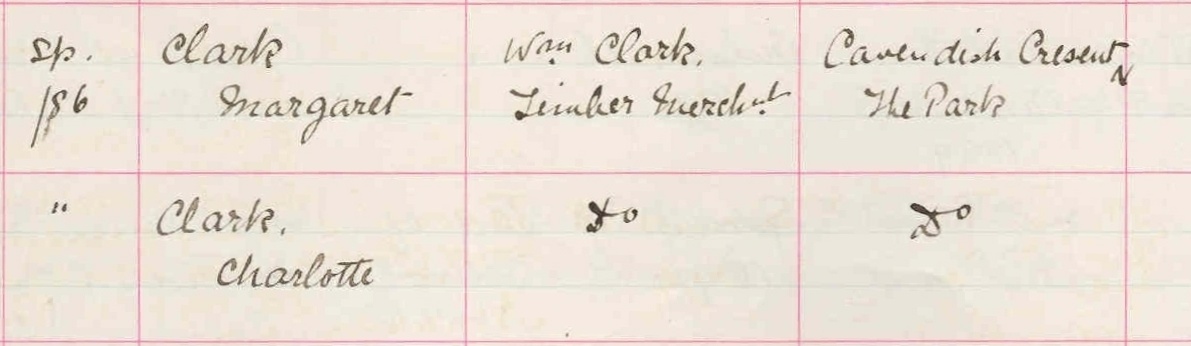 Sp. Clark Wm Clark. Cavendish Cresent N
/86 Margaret Timber Mercht The Park
" Clark. Do Do
Charlotte